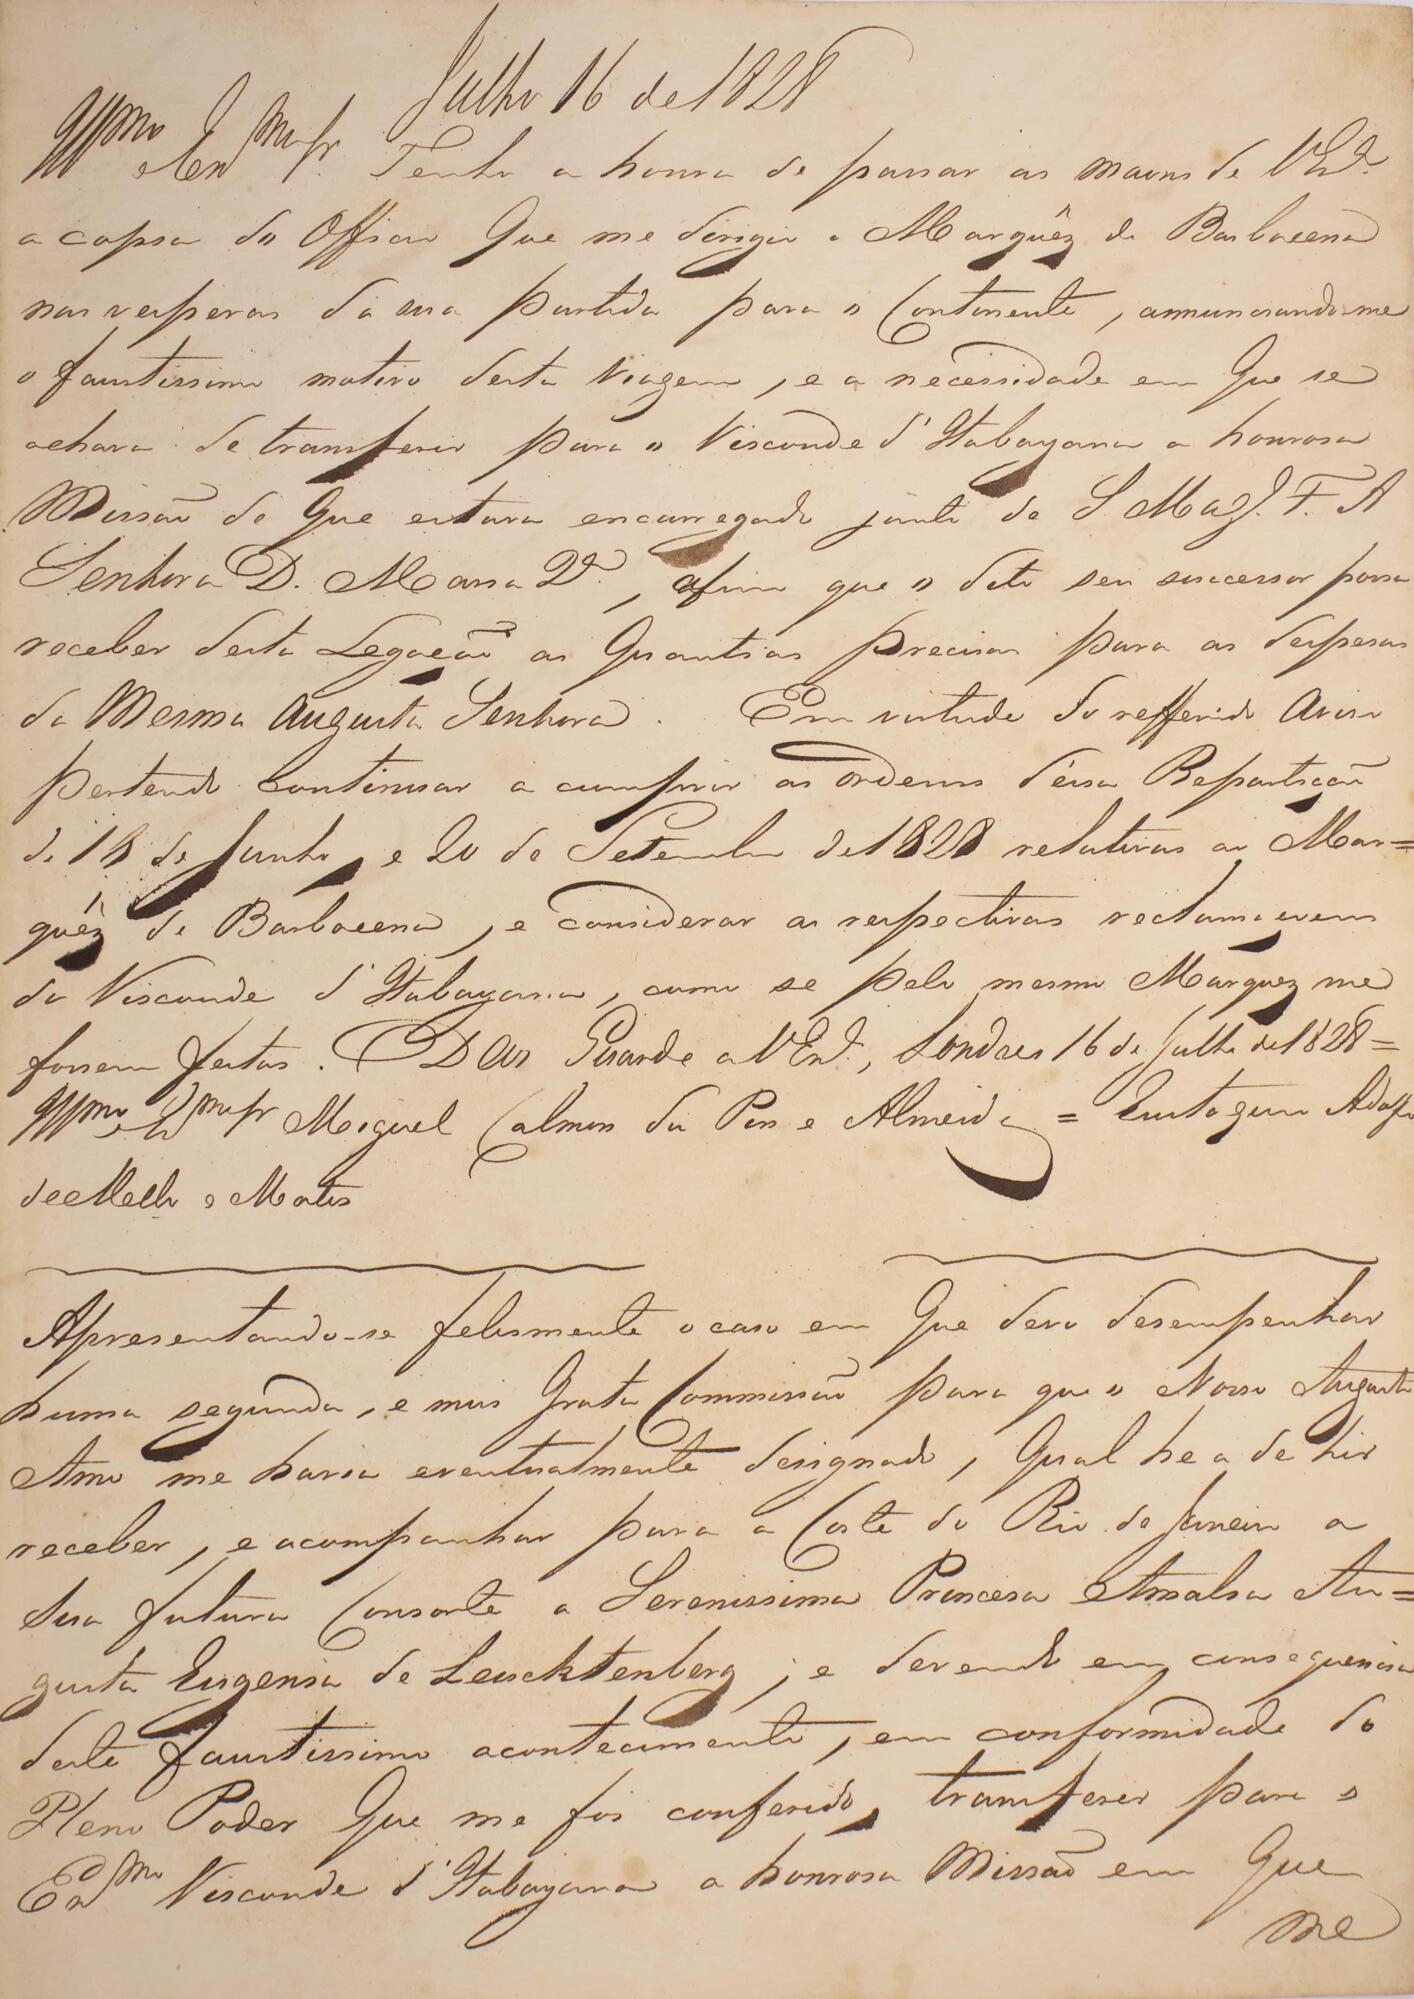 Julho 16 de 1828
Illmo e Exmo Sr. Tenho a honra de passar as maons de V Exa.
a copia do Officio Que me dirigio o Marquêz de Barbacena
nas vesperas da sua partida para o Continente, annunciando-me
o faustissimo motivo desta viagem, e a necessidade em Que se
achava de transferir para o Visconde d'Itabayana a honrosa
Missão de Que estava encarregado junto de S. Mag. F. A
Senhora D. Maria 2ª, afim que o dito seu successor possa
receber desta Legação as Quantias precisas para as despesas
da Mesma Augusta Senhora. Em virtude do refferido Aviso
pertendo continuar a cumprir as ordens d'éssa Repartição
de 18 de Junho, e 20 de Setembro de 1828 relativas ao Mar=
quêz de Barbacena, e considerar as respectivas reclamaçoens
do Visconde d'Itabayana, como se pelo mesmo Marquez me
fossem feitas. Deos Guarde a V Exa., Londres 16 de Julho de 1828 =
Illmo e Exmo Sr Miguel Calmon du Pin e Almeida = Eustaquio Adolfo
de Mello e Mattos
Apresentando-se felismente o caso em Que devo desempenhar
huma segunda, e mais Grata Commissão para que o Nosso Augusto
Amo me havia eventualmente designado, Qual he a de hir
receber, e acompanhar para a Corte do Rio de Janeiro a
Sua futura Consorte a Serenissima Princesa Amalia Au=
gusta Eugenia de Leuchtenberg, e devendo em consequencia
deste faustissimo acontecimento, em conformidade do
Pleno Poder Que me foi conferido, transferir para o
Exmo Visconde d'Itabayana a honrosa Missão em Que
me